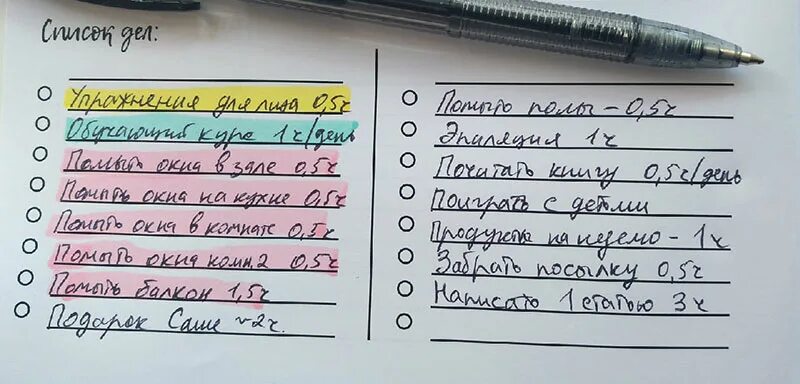 Список дел:
Упражнения для лица 0,5ч
Обучающий курс 1ч/день
Помыть окна в зале 0,5ч
Помыть окна на кухне 0,5ч
Помыть окна в комнате 0,5ч
Помыть окна комн.2 0,5ч
Помыть балкон 1,5ч
Подарок Саше ~2ч.
Помыть полы - 0,5ч
Эпиляция 1ч
Почитать книгу 0,5ч/день
Поиграть с детьми
Продукты на неделю - 1ч
Забрать посылку 0,5ч
Написать 1 статью 3ч